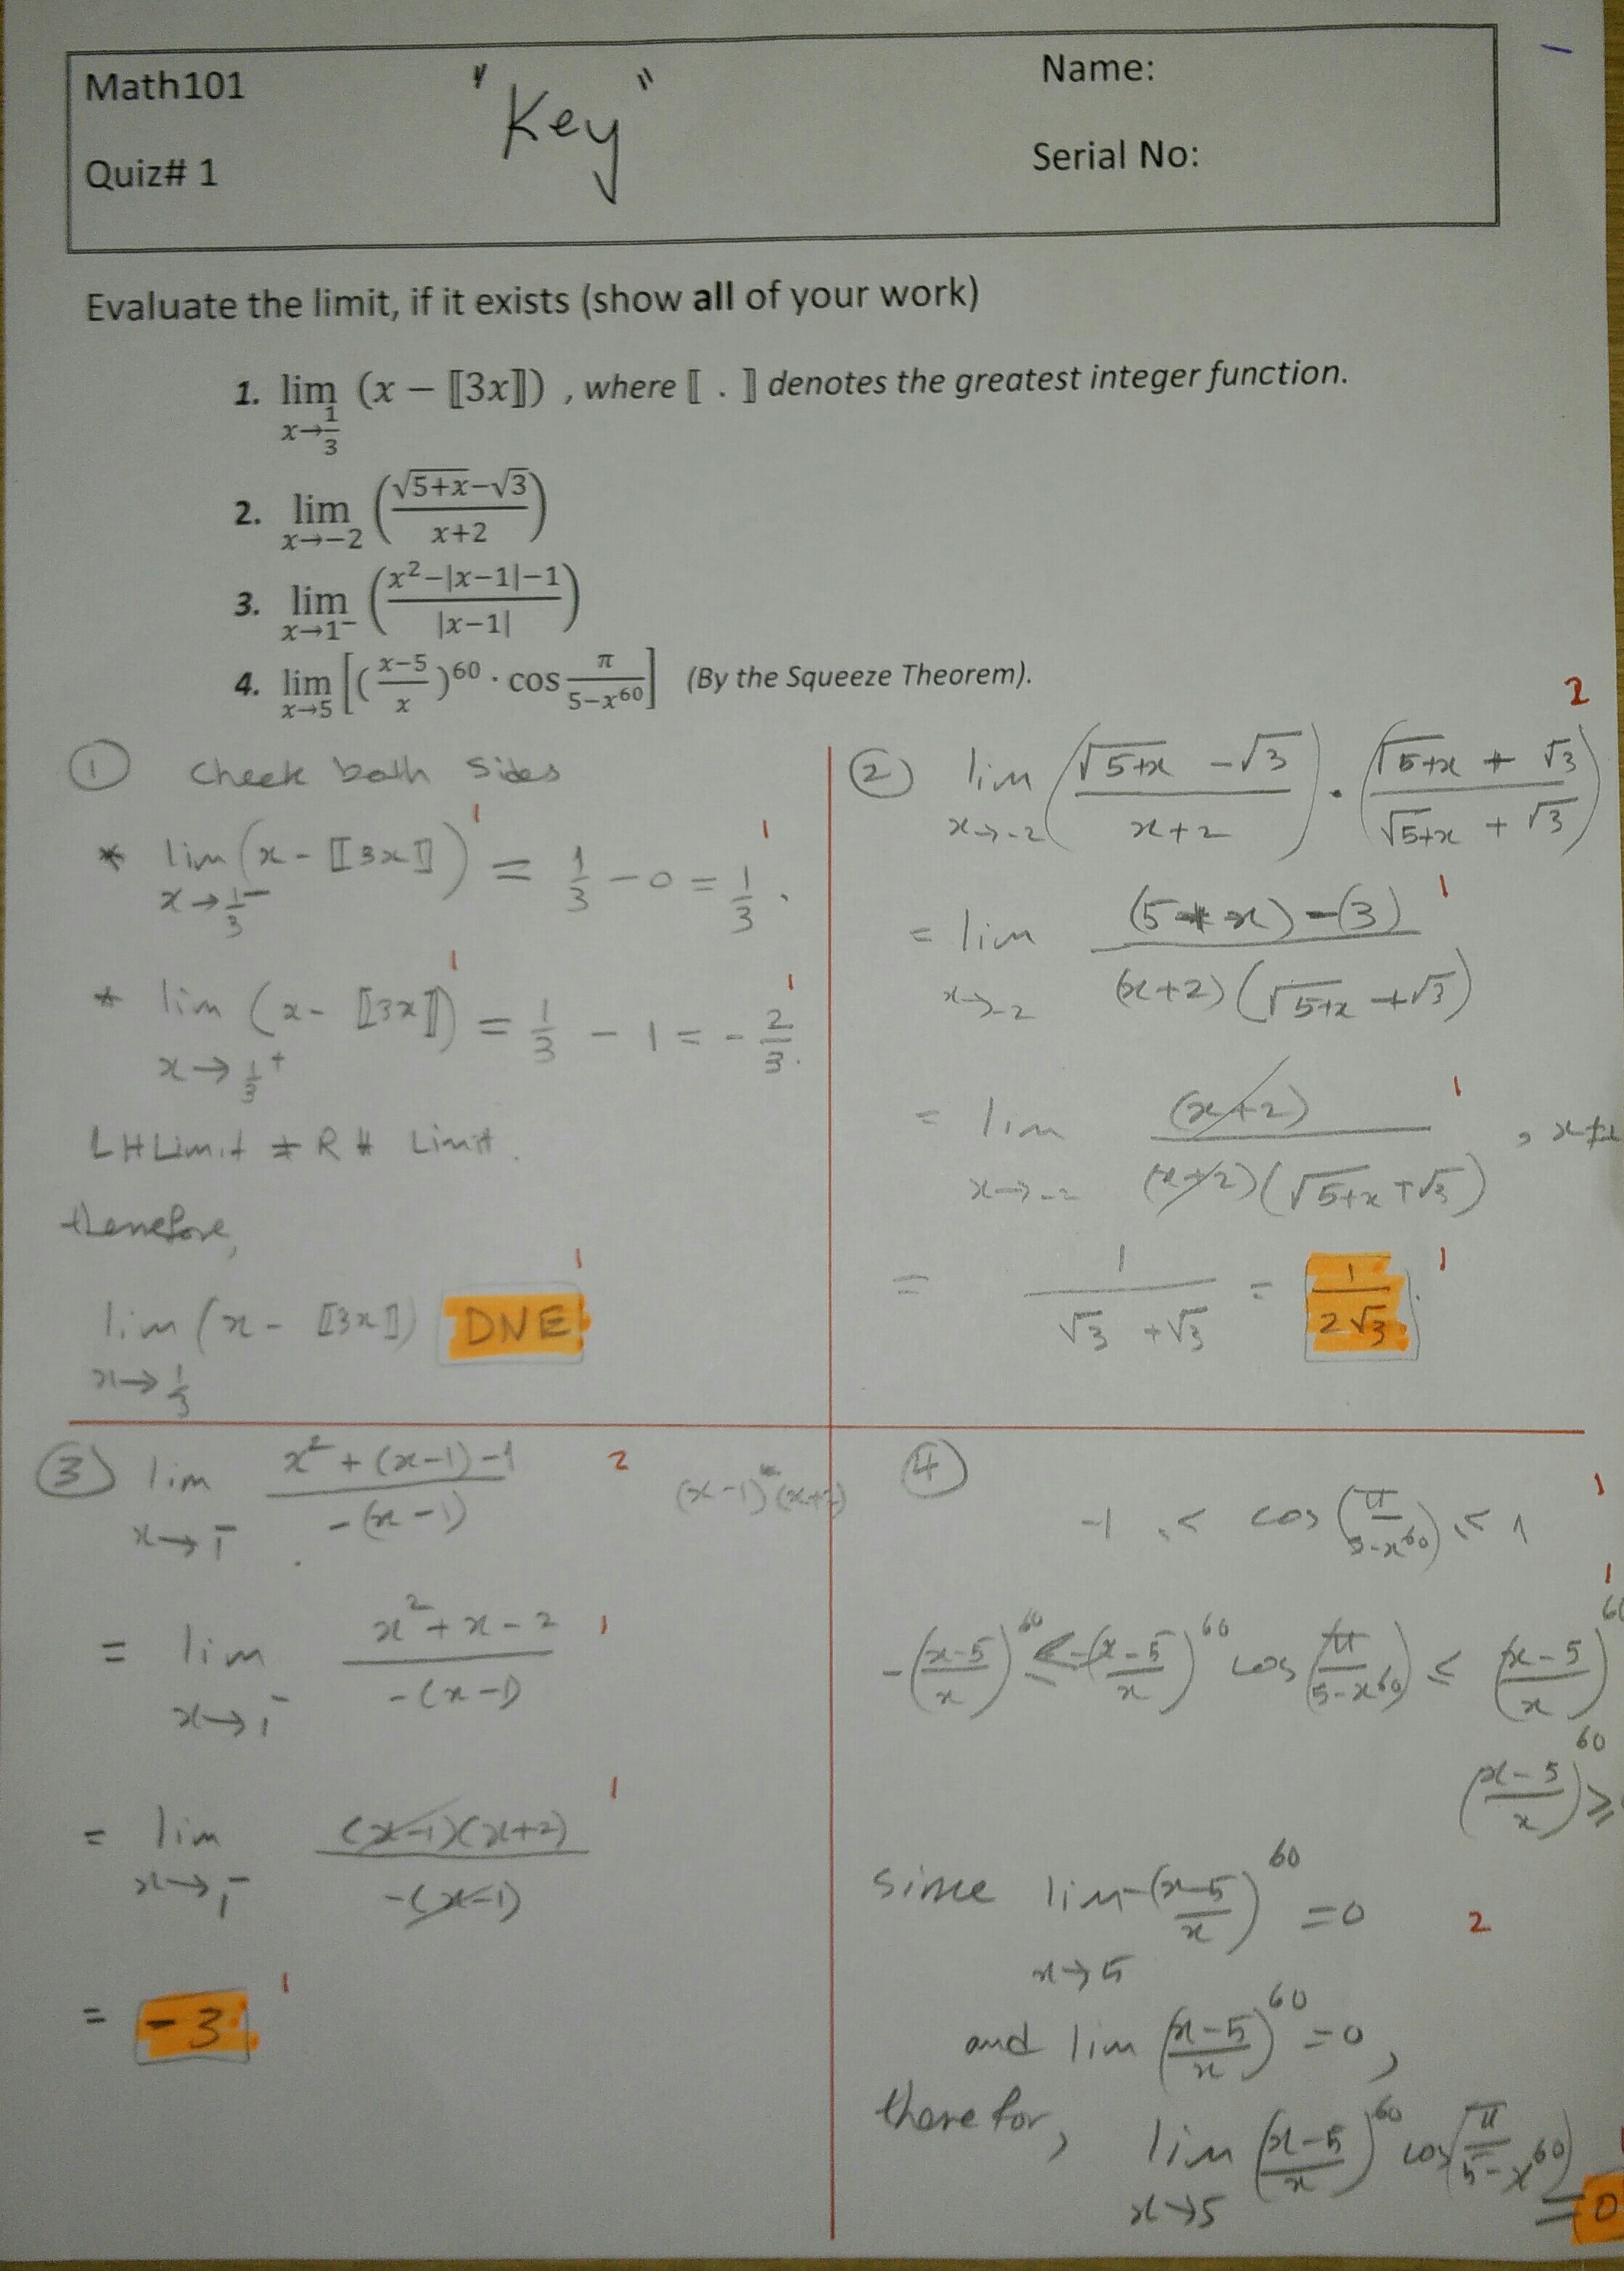 Math101
"Key"
Name:
Quiz# 1
Serial No:
Evaluate the limit, if it exists (show all of your work)
1. lim x→1/3 (x − ⟦3x⟧) , where ⟦ . ⟧ denotes the greatest integer function.
2. lim x→−2 ((√5+x − √3)/(x+2))
3. lim x→1⁻ ((x²−|x−1|−1)/|x−1|)
4. lim x→5 [((x−5)/x)⁶⁰ · cos π/(5−x⁶⁰)] (By the Squeeze Theorem).
① Check both sides
* lim x→1/3⁻ (x − ⟦3x⟧) = 1/3 − 0 = 1/3 . 1 1
* lim x→1/3⁺ (x − ⟦3x⟧) = 1/3 − 1 = −2/3. 1 1
LHLimit ≠ RH Limit.
therefore,
lim x→1/3 (x − ⟦3x⟧) DNE 1
② lim x→−2 ((√5+x − √3)/(x+2)) · ((√5+x + √3)/(√5+x + √3)) 2
= lim x→−2 ((5+x) − (3))/((x+2)(√5+x + √3)) 1
= lim x→−2 (x+2)/((x+2)(√5+x + √3)) , 1
= 1/(√3 + √3) = 1/(2√3) . 1
③ lim x→1⁻ (x² + (x−1) −1)/(−(x−1)) 2
(x−1)(x+2)
= lim x→1⁻ (x² + x − 2)/(−(x−1)) 1
= lim x→1⁻ ((x−1)(x+2))/(−(x−1)) 1
= −3 1
④
−1 ≤ cos(π/(5−x⁶⁰)) ≤ 1 1
−((x−5)/x)⁶⁰ ≤ ((x−5)/x)⁶⁰ cos(π/(5−x⁶⁰)) ≤ ((x−5)/x)⁶⁰ 1
((x−5)/x)⁶⁰ ≥
since lim x→5 −((x−5)/x)⁶⁰ = 0 2
and lim ((x−5)/x)⁶⁰ = 0 ,
therefor, lim x→5 ((x−5)/x)⁶⁰ cos(π/(5−x⁶⁰)) = 0 1